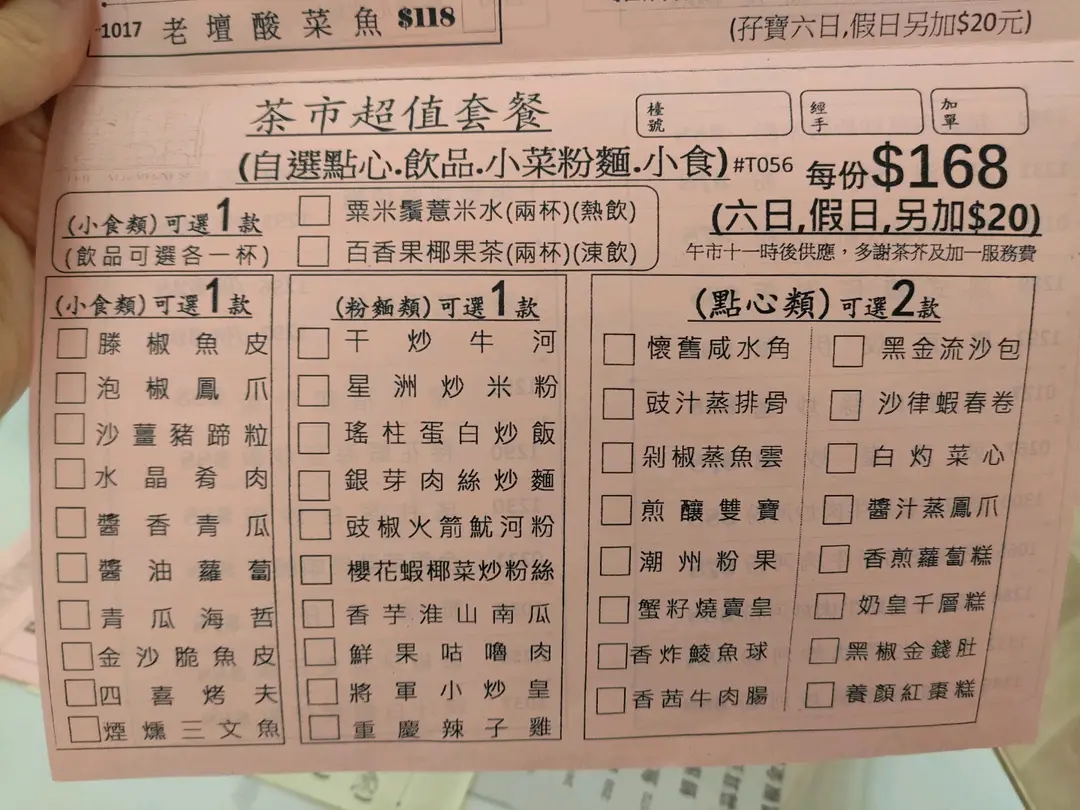 1017 老壇酸菜魚 $118
(孖寶六日,假日另加$20元)
茶市超值套餐
檯號
經手
加單
(自選點心.飲品.小菜粉麵.小食)#T056 每份$168
(六日,假日,另加$20)
午市十一時後供應，多謝茶芥及加一服務費
(小食類)可選1款
(飲品可選各一杯)
粟米鬚薏米水(兩杯)(熱飲)
百香果椰果茶(兩杯)(涷飲)
(小食類)可選1款
滕椒魚皮
泡椒鳳爪
沙薑豬蹄粒
水晶肴肉
醬香青瓜
醬油蘿蔔
青瓜海哲
金沙脆魚皮
四喜烤夫
煙燻三文魚
(粉麵類)可選1款
干炒牛河
星洲炒米粉
瑤柱蛋白炒飯
銀芽肉絲炒麵
豉椒火箭魷河粉
櫻花蝦椰菜炒粉絲
香芋淮山南瓜
鮮果咕嚕肉
將軍小炒皇
重慶辣子雞
(點心類)可選2款
懷舊咸水角
豉汁蒸排骨
剁椒蒸魚雲
煎釀雙寶
潮州粉果
蟹籽燒賣皇
香炸鯪魚球
香茜牛肉腸
黑金流沙包
沙律蝦春卷
白灼菜心
醬汁蒸鳳爪
香煎蘿蔔糕
奶皇千層糕
黑椒金錢肚
養顏紅棗糕